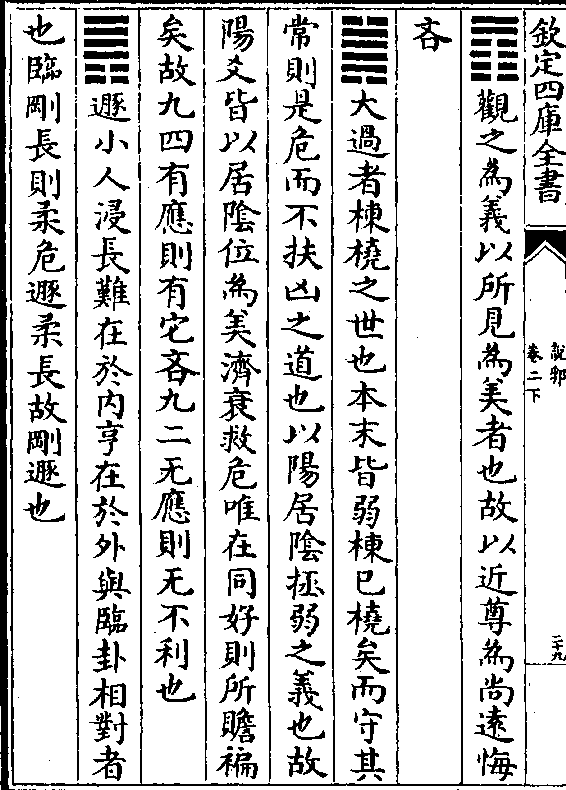 欽定四庫全書
說郛
卷二下
二十九
䷓觀之為義以所見為美者也故以近尊為尚遠悔
吝
䷛大過者棟橈之世也本末皆弱棟已橈矣而守其
常則是危而不扶凶之道也以陽居陰拯弱之義也故
陽爻皆以居陰位為美濟衰救危唯在同好則所贍褊
矣故九四有應則有它吝九二无應則无不利也
䷠遯小人浸長難在於内亨在於外與臨卦相對者
也臨剛長則柔危遯柔長故剛遯也